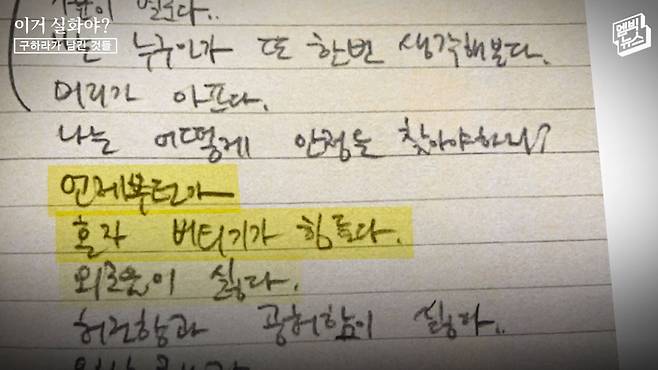 이거 실화야?
구하라가 남긴 것들
엠빅
뉴스
누구인가 또 한번 생각해본다.
머리가 아프다.
나는 어떻게 안정을 찾아야하니?
언제부턴가
혼자 버티기가 힘들다.
외로움이 싫다.
허전함과 공허함이 싫다..